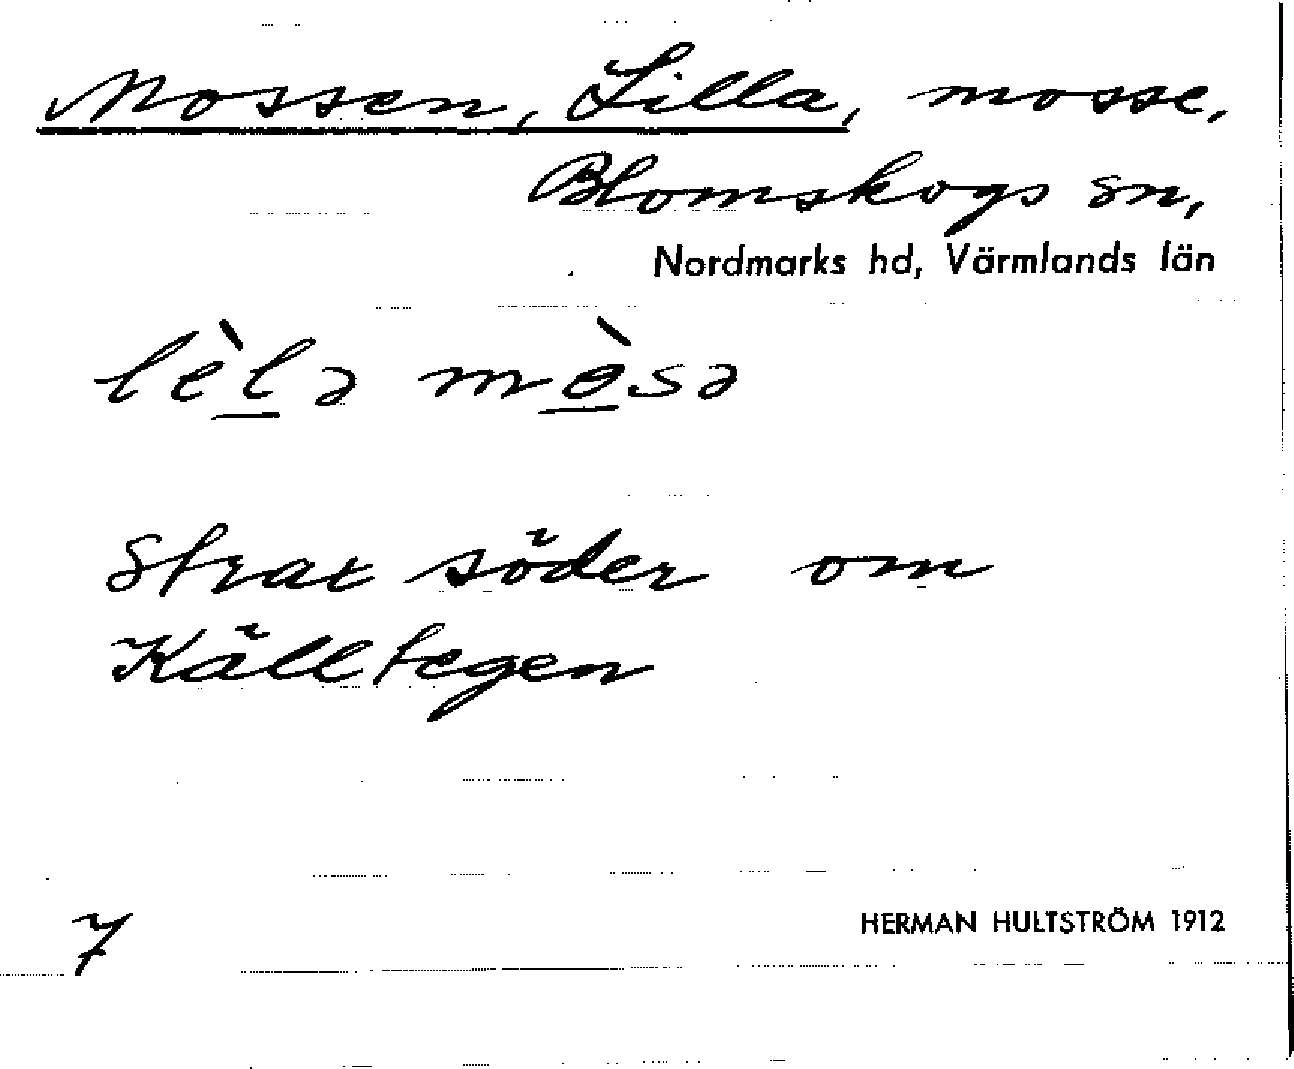 Mossen, Lilla, mosse,
Blomskogs sn,
Nordmarks hd, Värmlands län
lèlə mòsə
Strax söder om
Källtegen
7
HERMAN HULTSTRÖM 1912